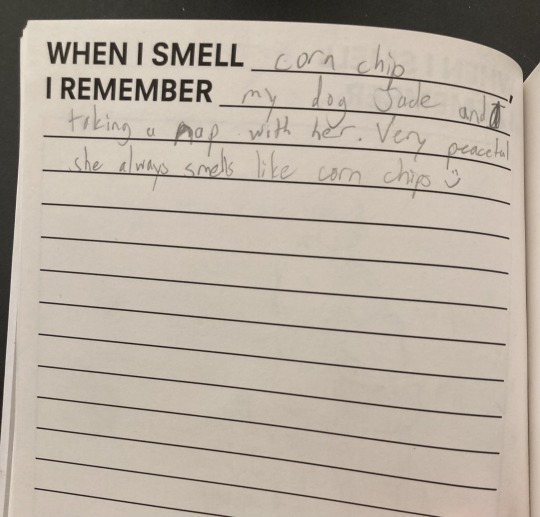 WHEN I SMELL corn chip,
I REMEMBER my dog Jade and
taking a nap with her. Very peaceful
she always smells like corn chips